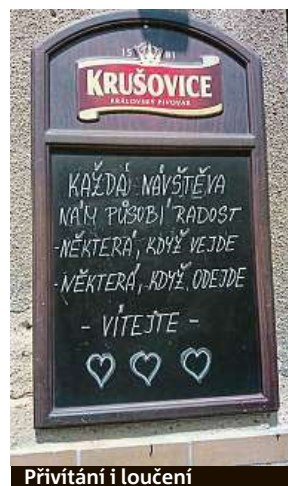 1581
KRUŠOVICE
KRÁLOVSKÝ PIVOVAR
KAŽDÁ NÁVŠTĚVA
NÁM PŮSOBÍ RADOST
-NĚKTERÁ, KDYŽ VEJDE
-NĚKTERÁ, KDYŽ ODEJDE
- VÍTEJTE -
Přivítání i loučení